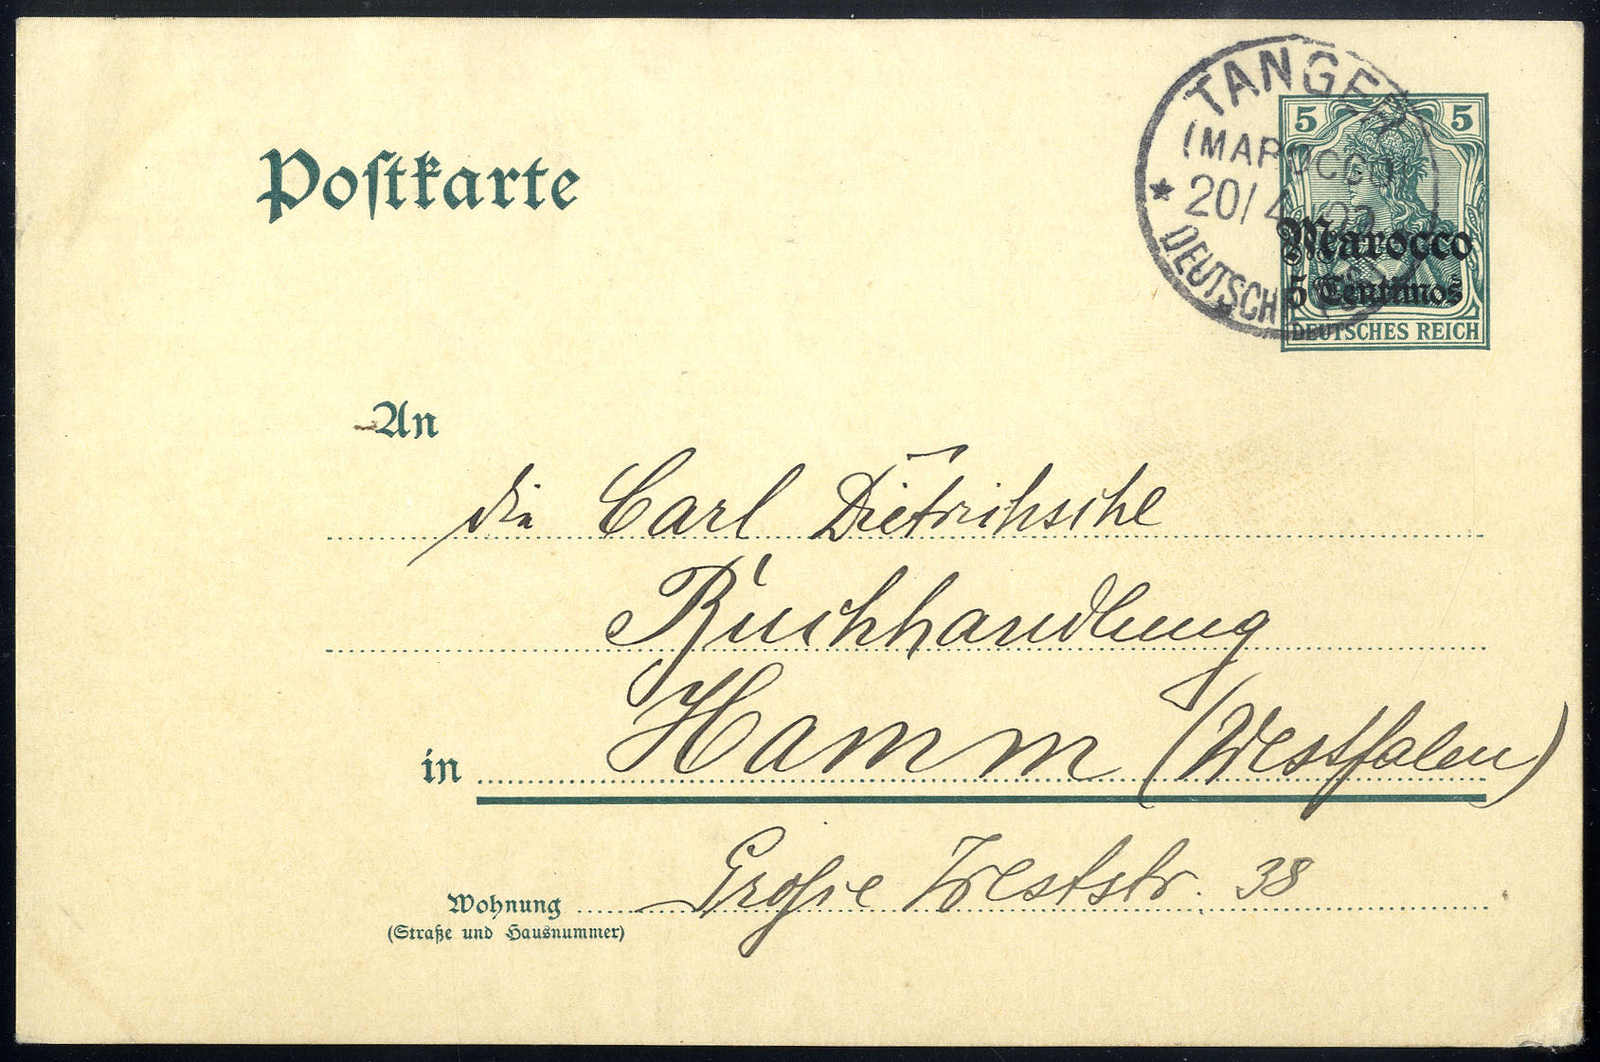 Postkarte
TANGER
(MAROCCO)
20/4 03
* DEUTSCHE POST
5 5
Marocco
5 Centimos
DEUTSCHES REICH
An
die Carl Dietrichsche
Buchhandlung
in Hamm (Westfalen)
Wohnung Große Weststr. 38
(Straße und Hausnummer)